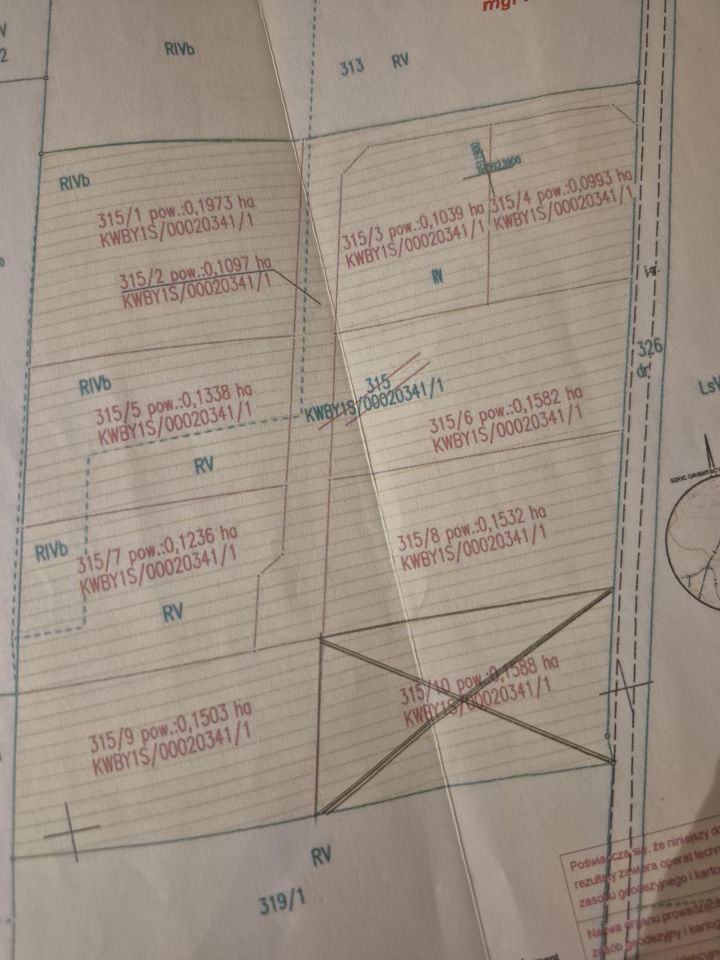 RIVb
313 RV
RIVb
315/1 pow.:0,1973 ha
KWBY1S/00020341/1
315/2 pow.:0,1097 ha
KWBY1S/00020341/1
315/3 pow.:0,1039 ha
KWBY1S/00020341/1
315/4 pow.:0,0993 ha
KWBY1S/00020341/1
RV
326
dr
RIVb
315/5 pow.:0,1338 ha
KWBY1S/00020341/1
RV
315
KWBY1S/00020341/1
315/6 pow.:0,1582 ha
KWBY1S/00020341/1
RIVb
315/7 pow.:0,1236 ha
KWBY1S/00020341/1
RV
315/8 pow.:0,1532 ha
KWBY1S/00020341/1
315/9 pow.:0,1503 ha
KWBY1S/00020341/1
315/10 pow.:0,1588 ha
KWBY1S/00020341/1
RV
319/1
Poświadcza się, że niniejszy
rezultaty zawiera operat
zasobu geodezyjnego i
Nazwa organu
zasób geodezyjny i